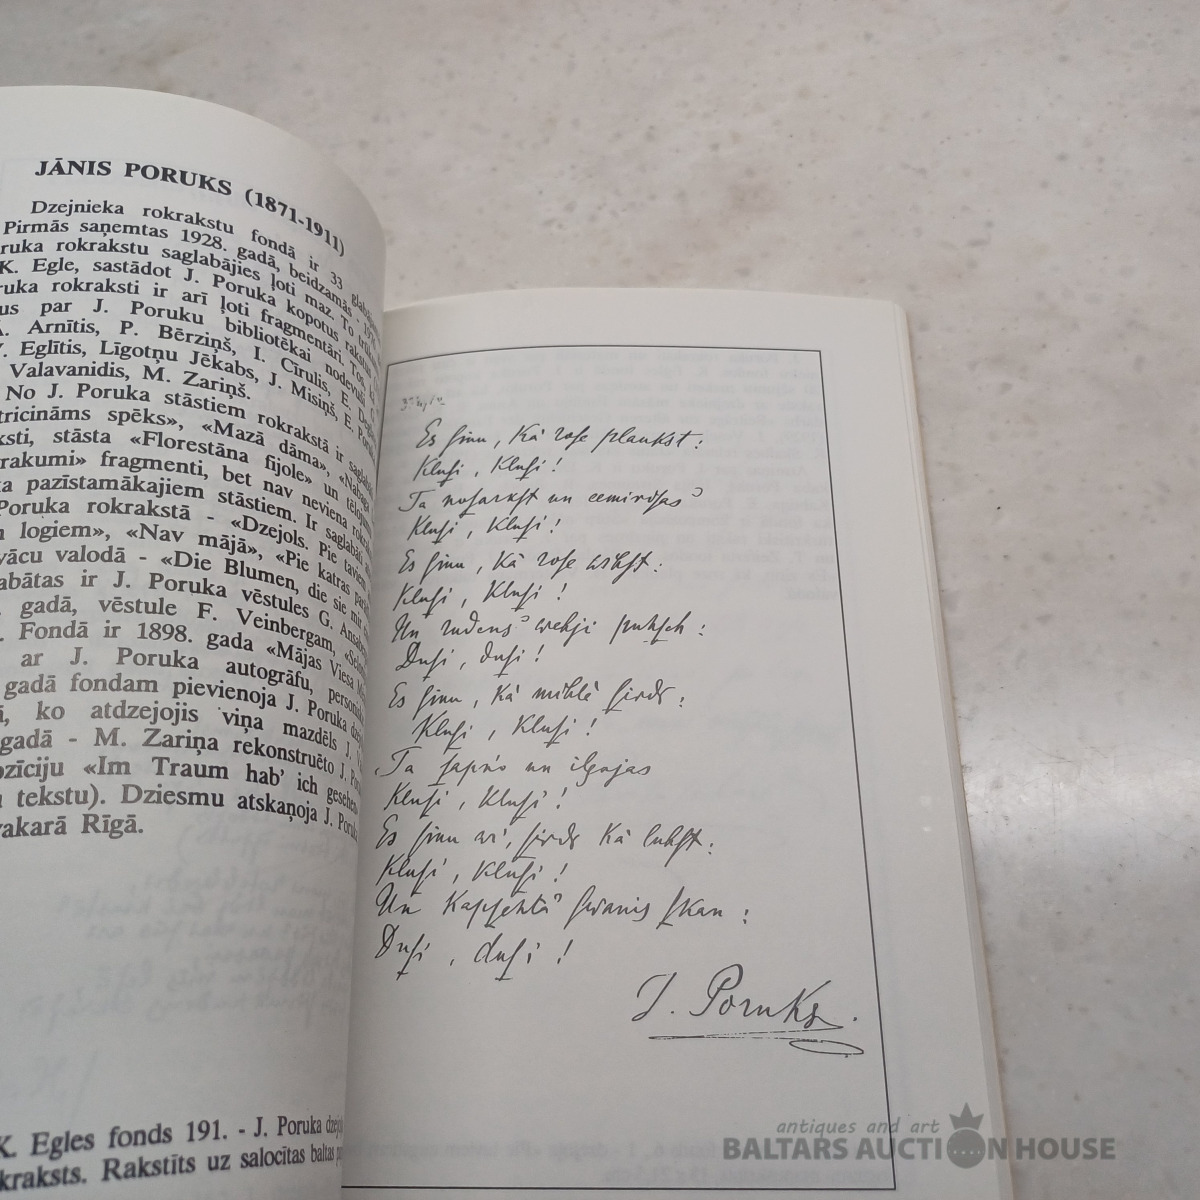 JĀNIS PORUKS (1871-1911)
Dzejnieka rokrakstu fondā ir 33
Pirmās saņemtas 1928. gadā, beidzamās - 
ruka rokrakstu saglabājies ļoti maz. To
K. Egle, sastādot J. Poruka kopotus
ruka rokraksti ir arī ļoti fragmentāri.
us par J. Poruku bibliotēkai nodevuši
A. Arnītis, P. Bērziņš, I. Cīrulis, E.
V. Eglītis, Līgotņu Jēkabs, J. Misiņš, E.
Valavanidis, M. Zariņš.
No J. Poruka stāstiem rokrakstā ir
tricināms spēks», «Mazā dāma»,
ksti, stāsta «Florestāna fijole» un
rakumi» fragmenti, bet nav neviena
ka pazīstamākajiem stāstiem. Ir saglabāti
Poruka rokrakstā - «Dzejols. Pie
logiem», «Nav mājā», «Pie katras
vācu valodā - «Die Blumen, die sie mir
abātas ir J. Poruka vēstules G.
gadā, vēstule F. Veinbergam,
Fondā ir 1898. gada «Mājas Viesa
ar J. Poruka autogrāfu,
gadā fondam pievienoja J. Poruka
ā, ko atdzejojis viņa mazdēls J.
gadā - M. Zariņa rekonstruēto J.
ozīciju «Im Traum hab' ich gesehen
tekstu). Dziesmu atskaņoja J.
vakarā Rīgā.
K. Egles fonds 191. - J. Poruka
kraksts. Rakstīts uz salocītas baltas
Es ſinu, Kā roſe plaukst:
Kluſi, Kluſi!
Ta noſarkſt un
Kluſi, Kluſi!
Es ſinu, Kā roſe wihſt:
Kluſi, Kluſi!
Un rudens wehji puhſch:
Duſi, duſi!
Es ſinu, Kā mihlē ſirds:
Kluſi, Kluſi!
Ta ſapņo un ilgojas
Kluſi, Kluſi!
Es ſinu arī, ſirds Kā luhſt:
Kluſi, Kluſi!
Un Kapſehtā ſwanis ſkan:
Duſi, duſi!
J. Poruks.
antiques and art
BALTARS AUCTION HOUSE